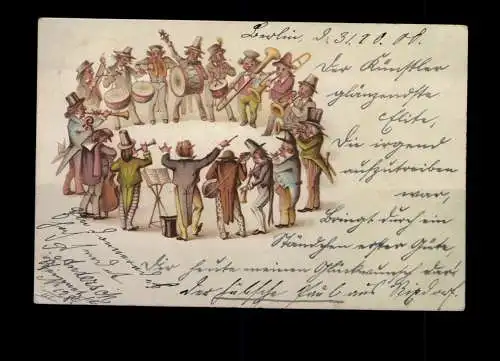 Berlin, d. 31.10.00.
Der Künstler
glänzendste
Elite,
Die irgend
aufzutreiben
war,
Bringt durch ein
Ständchen erster Güte
Dir heute meinen Glückwunsch dar!
der hübsche Paul aus Rixdorf.